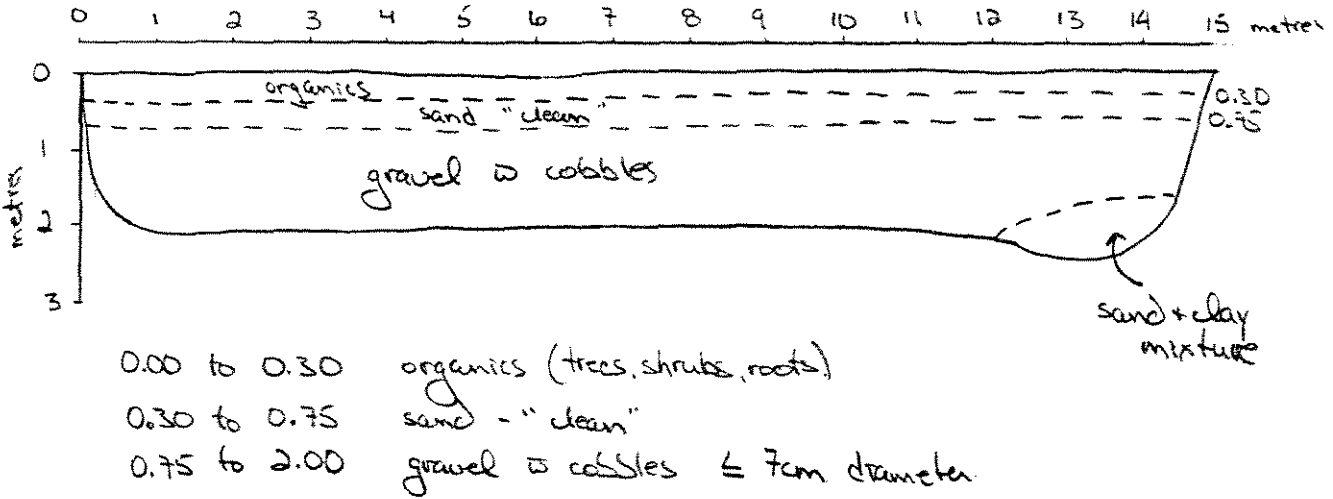 0 1 2 3 4 5 6 7 8 9 10 11 12 13 14 15 metres
0
organics
0.30
sand "clean"
0.75
1
gravel w cobbles
metres
2
3
sand + clay
mixture
0.00 to 0.30 organics (trees, shrubs, roots)
0.30 to 0.75 sand - "clean"
0.75 to 2.00 gravel w cobbles ≤ 7cm diameter.